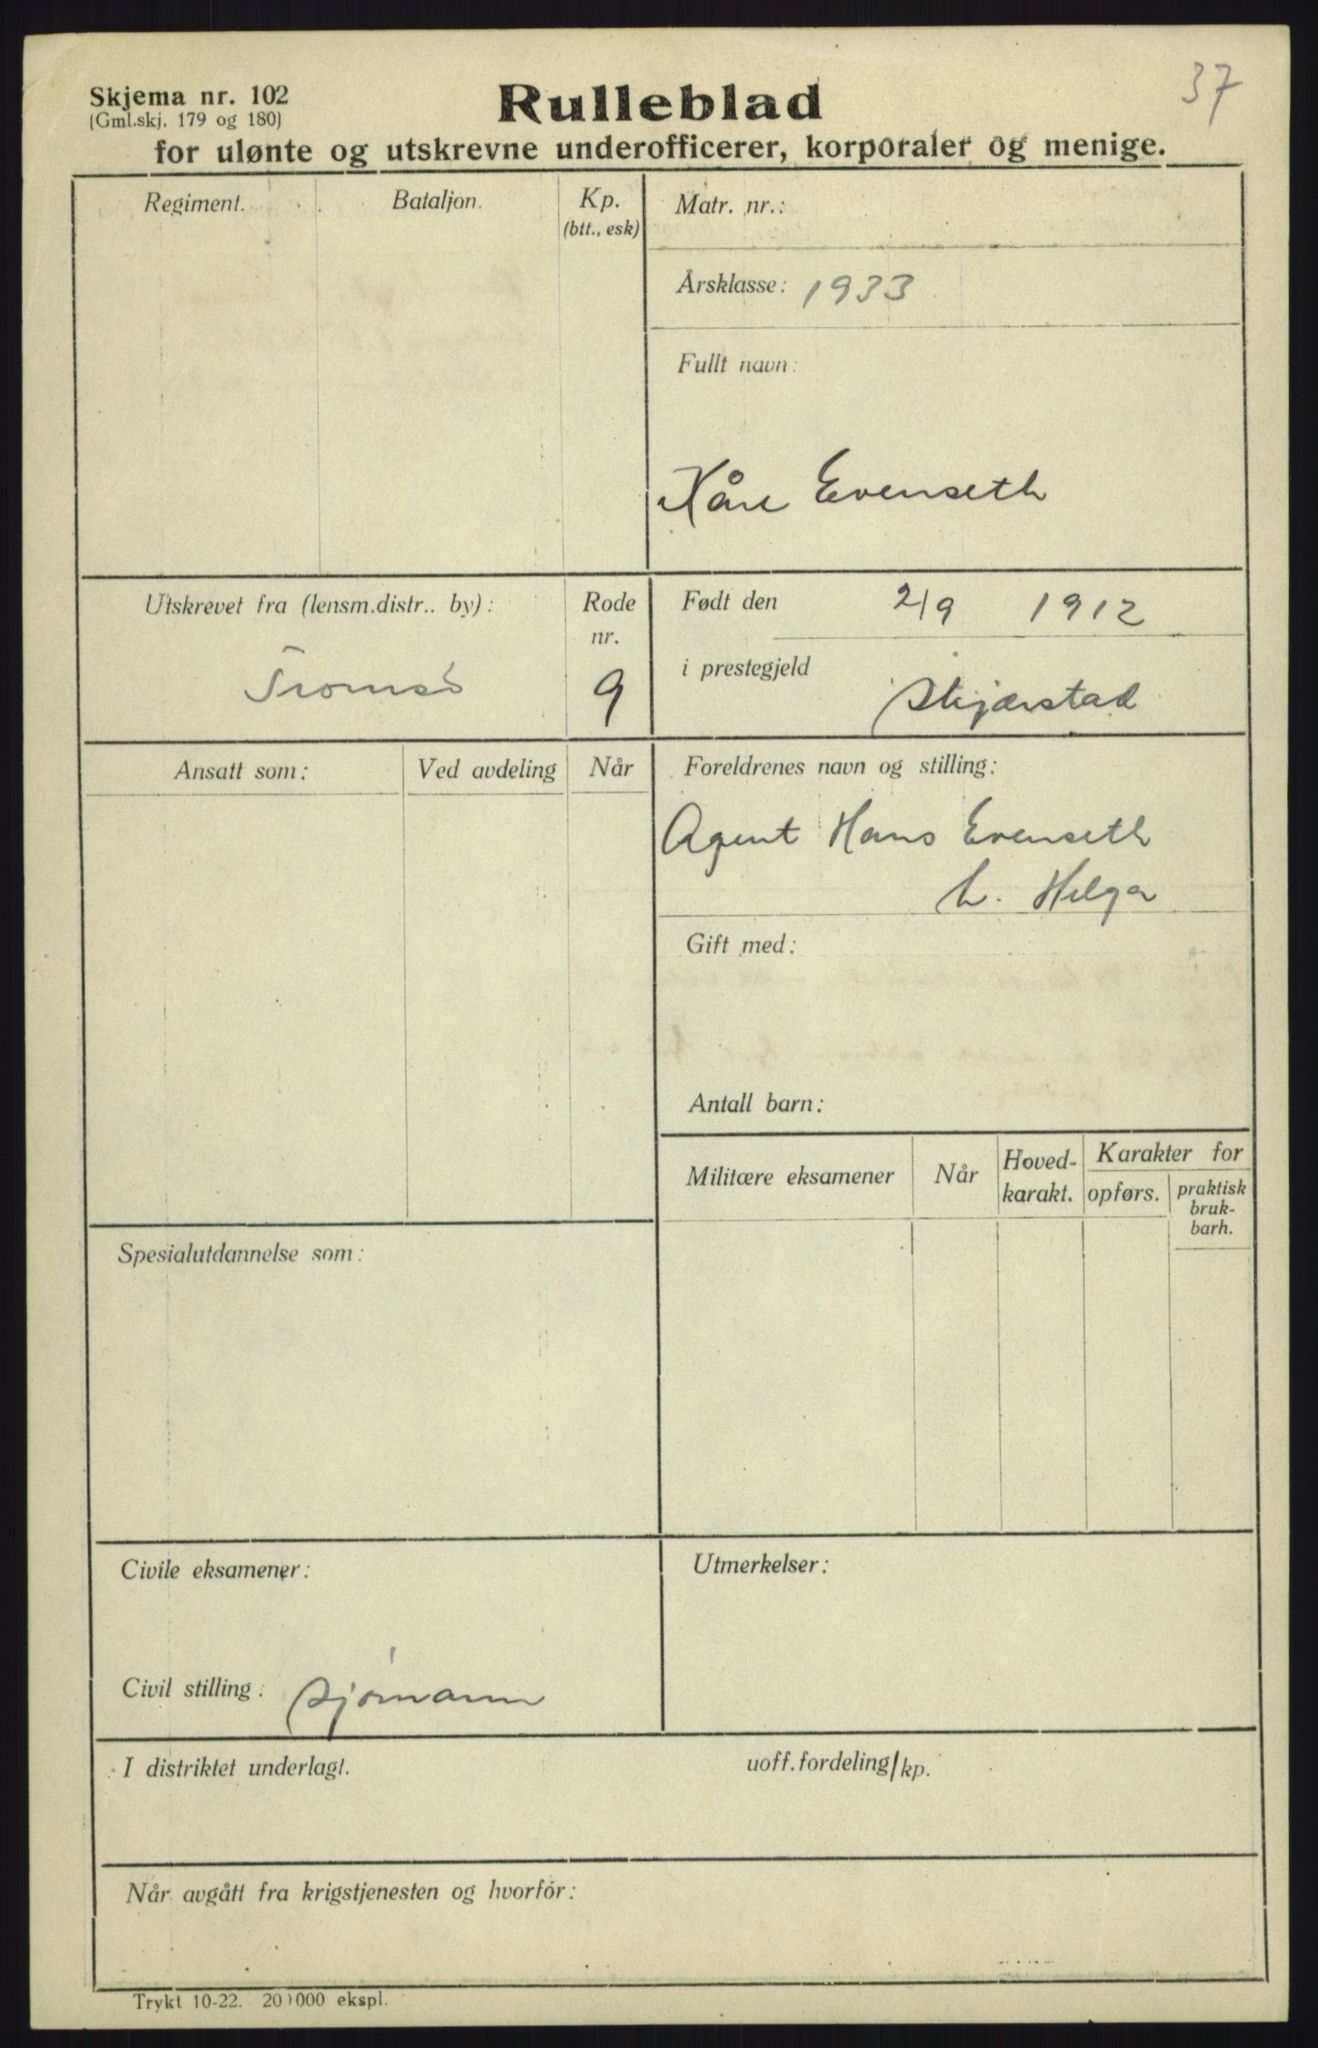 37
Skjema nr. 102
(Gml.skj. 179 og 180)
Rulleblad
for ulønte og utskrevne underofficerer, korporaler og menige.
Regiment.
Bataljon.
Kp.
(btt., esk)
Matr. nr.:
Årsklasse: 1933
Fullt navn:
Kåre Evenseth
Utskrevet fra (lensm.distr.. by):
Tromsø
Rode
nr.
9
Født den 2/9 1912
i prestegjeld Skjærstad
Ansatt som:
Ved avdeling
Når
Foreldrenes navn og stilling:
Agent Hans Evenseth
h. Helga
Gift med:
Antall barn:
Militære eksamener
Når
Hoved-
karakt.
Karakter for
opførs.
praktisk
bruk-
barh.
Spesialutdannelse som:
Civile eksamener:
Civil stilling: sjømann
Utmerkelser:
I distriktet underlagt.
uoff.fordeling/kp.
Når avgått fra krigstjenesten og hvorfor:
Trykt 10-22. 20 000 ekspl.